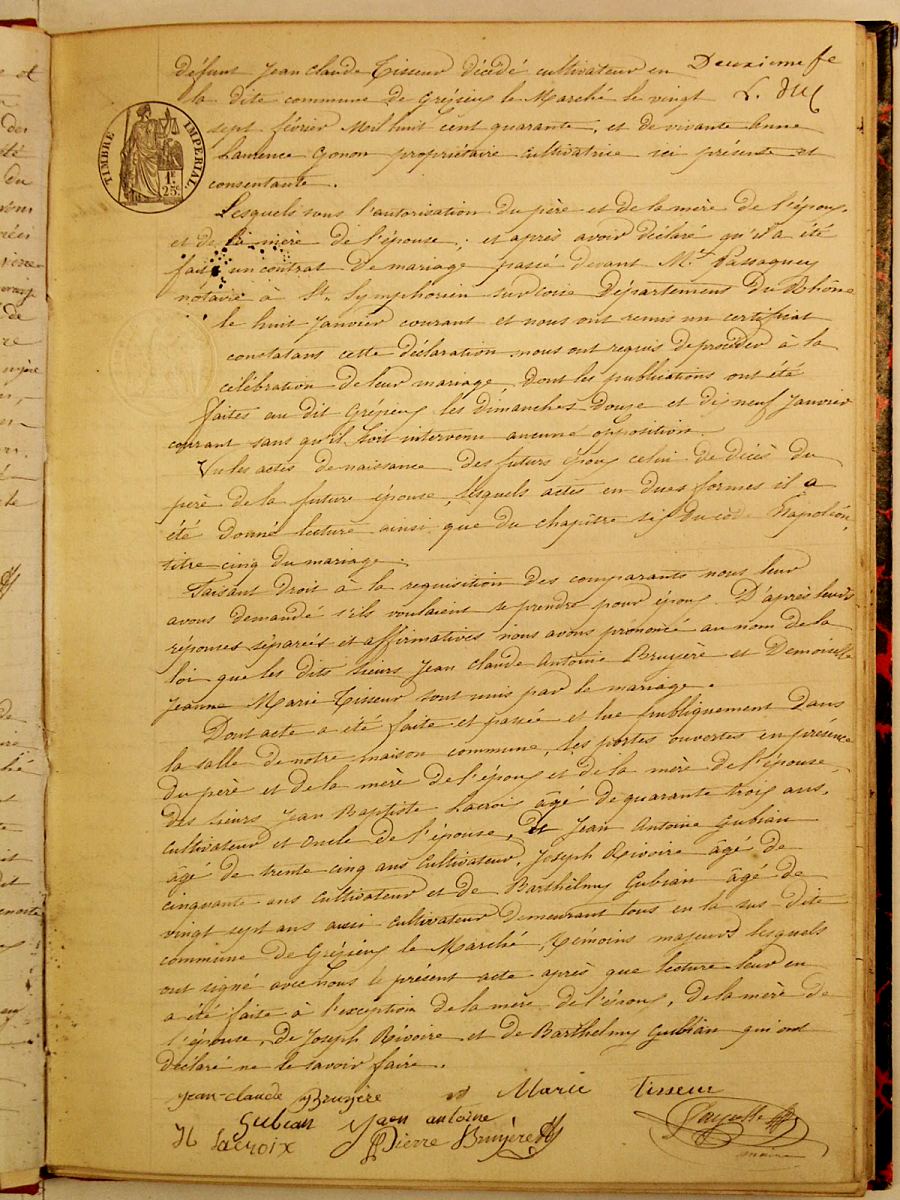 Deuxième fe
défunt Jean Claude Tisseur décédé cultivateur en
la dite commune de Grézieu le Marché le vingt
sept février Mil huit cent quarante, et de vivante Anne
TIMBRE IMPERIAL
1F. 25c.
Laurence Gonon propriétaire cultivatrice ici présente et
consentante.
Lesquels sous l'autorisation du père et de la mère de l'époux,
et de la mère de l'épouse, et après avoir déclaré qu'il a été
fait un contrat de mariage passé devant Mt. Passaguey
notaire à St. Symphorien sur Coise Département du Rhône
le huit Janvier courant et nous ont remis un certificat
constatant cette déclaration nous ont requis de procéder à la
célébration de leur mariage, dont les publications ont été
faites au dit Grézieu les dimanches douze et dix neuf Janvier
courant sans qu'il soit intervenu aucune opposition.
Vu les actes de naissance des futurs époux celui de décès du
père de la future épouse, lesquels actes en dues formes il a
été donné lecture ainsi que du chapitre six du code Napoléon,
titre cinq du mariage.
Faisant droit à la requisition des comparants nous leur
avons demandé s'ils voulaient se prendre pour époux. D'après leurs
réponses séparées et affirmatives nous avons prononcé au nom de la
loi que les dits sieurs Jean Claude Antoine Bruyère et Demoiselle
Jeanne Marie Tisseur sont unis par le mariage.
Dont acte a été faite et passée et lue publiquement dans
la salle de notre maison commune, les portes ouvertes en présence
du père et de la mère de l'époux et de la mère de l'épouse,
des sieurs Jean Baptiste Lacroix âgé de quarante trois ans,
cultivateur et oncle de l'épouse, de Jean Antoine Gubian
âgé de trente cinq ans cultivateur, Joseph Rivoire âgé de
cinquante ans cultivateur et de Barthélmy Gubian âgé de
vingt sept ans aussi cultivateur demeurant tous en la sus-dite
commune de Grézieu le Marché, témoins majeurs lesquels
ont signé avec nous le présent acte après que lecture leur en
a été faite à l'exception de la mère de l'époux, de la mère de
l'épouse, de Joseph Rivoire et de Barthelmy Gubian qui ont
déclaré ne le savoir faire.
Jean-claude Bruyère et Marie Tisseur
Gubian Jean antoine
Lacroix Pierre Bruyère
maire